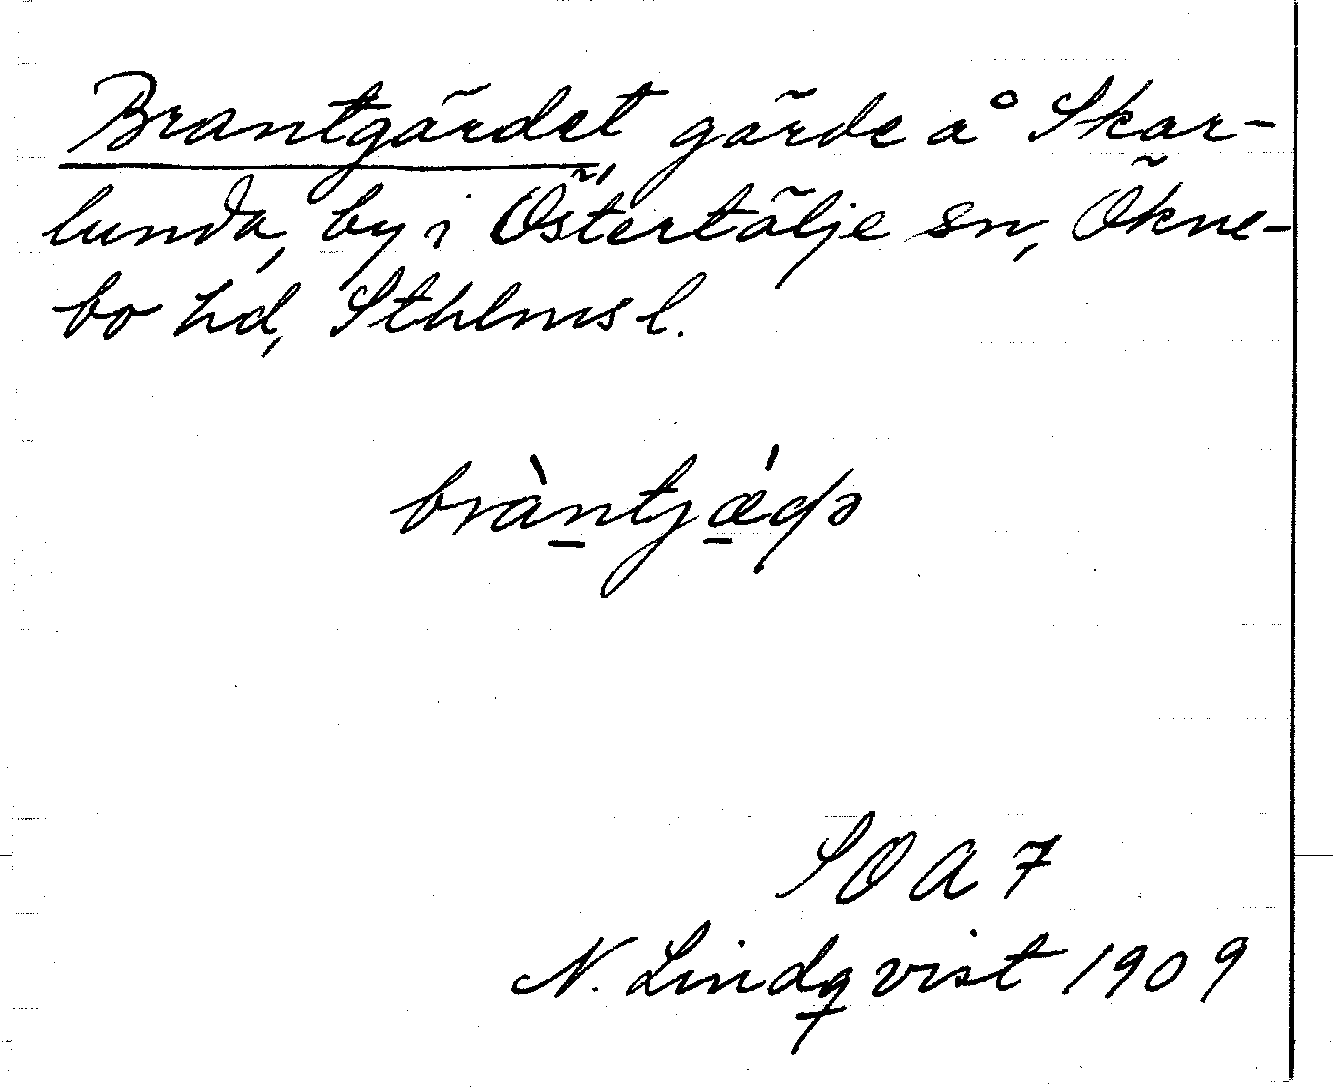 Brantgärdet, gärde å Skar-
lunda, by i Östertälje sn, Ökne-
bo hd, Sthlms l.
bràntjǽɖə
SOA 7
N. Lindqvist 1909